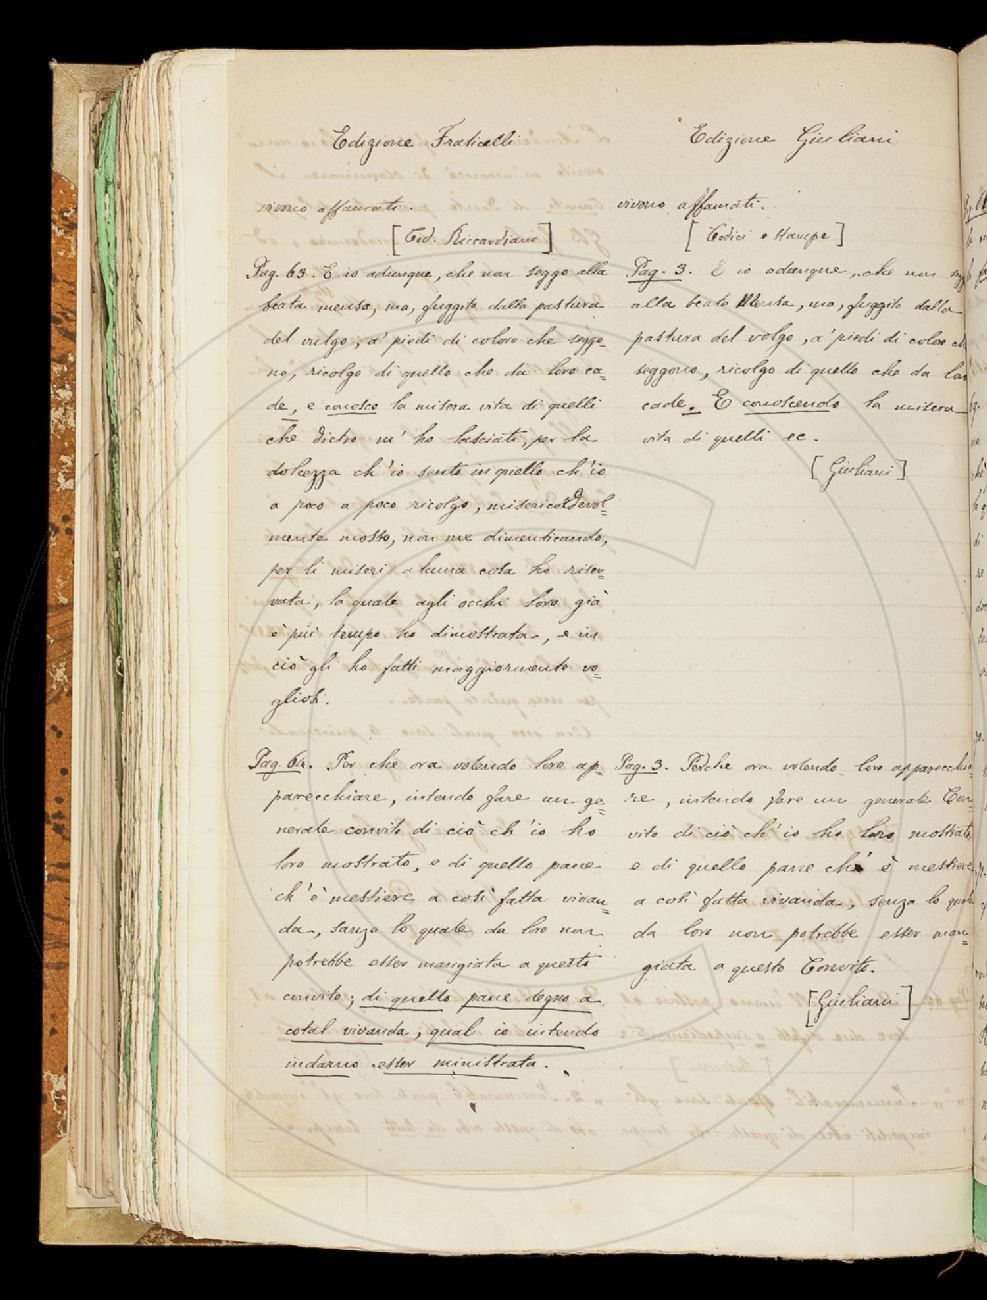 Edizione Fraticelli
vivono affamati.
[Cod. Riccardiano]
Pag. 63. E io adunque, che non seggo alla
beata mensa, ma, fuggito dalla pastura
del vulgo, a' piedi di coloro che seggo=
no, ricolgo di quello che da loro ca=
de, e conosco la misera vita di quelli
che dietro m' ho lasciati, per la
dolcezza ch'io sento in quello ch'io
a poco a poco ricolgo, misericordevol=
mente mosso, non me dimenticando,
per li miseri alcuna cosa ho riser=
vata, la quale agli occhi loro già
è più tempo ho dimostrata, e in
ciò gli ho fatti maggiormente vo=
gliosi.
Pag. 64. Per che ora volendo loro ap=
parecchiare, intendo fare un ge=
nerale convito di ciò ch'io ho
loro mostrato, e di quello pane
ch' è mestiere a così fatta vivan=
da, sanza lo quale da loro non
potrebbe esser mangiata a questo
convito; di quello pane degno a
cotal vivanda, qual io intendo
indarno esser ministrata.
Edizione Giuliani
vivono affamati.
[Codici e stampe]
Pag. 3. E io adunque, che non
alla beata Mensa, ma, fuggito dalla
pastura del volgo, a' piedi di coloro
seggono, ricolgo di quello che da
cade. E conoscendo la misera
vita di quelli ec.
[Giuliani]
Pag. 3. Perche ora volendo loro apparecchia
re, intendo fare un generale Con=
vito di ciò ch'io ho loro mostrato,
e di quello pane ch' è mestiere
a così fatta vivanda, senza lo quale
da loro non potrebbe esser man=
giata a questo Convito.
[Giuliani]